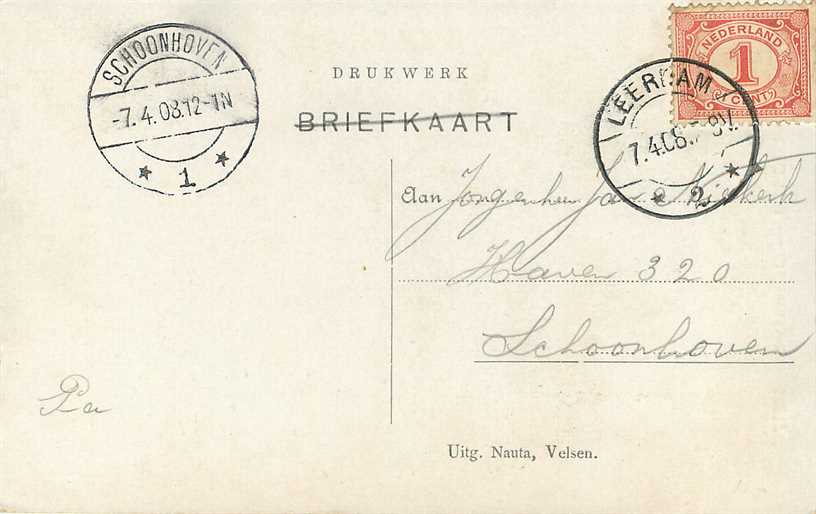 SCHOONHOVEN
-7.4.08.12-1N
1
DRUKWERK
BRIEFKAART
NEDERLAND
1
CENT
LEERDAM
7.4.08. 8V.
2
Aan Jongenheer
Haven 320
Schoonhoven
Pa
Uitg. Nauta, Velsen.